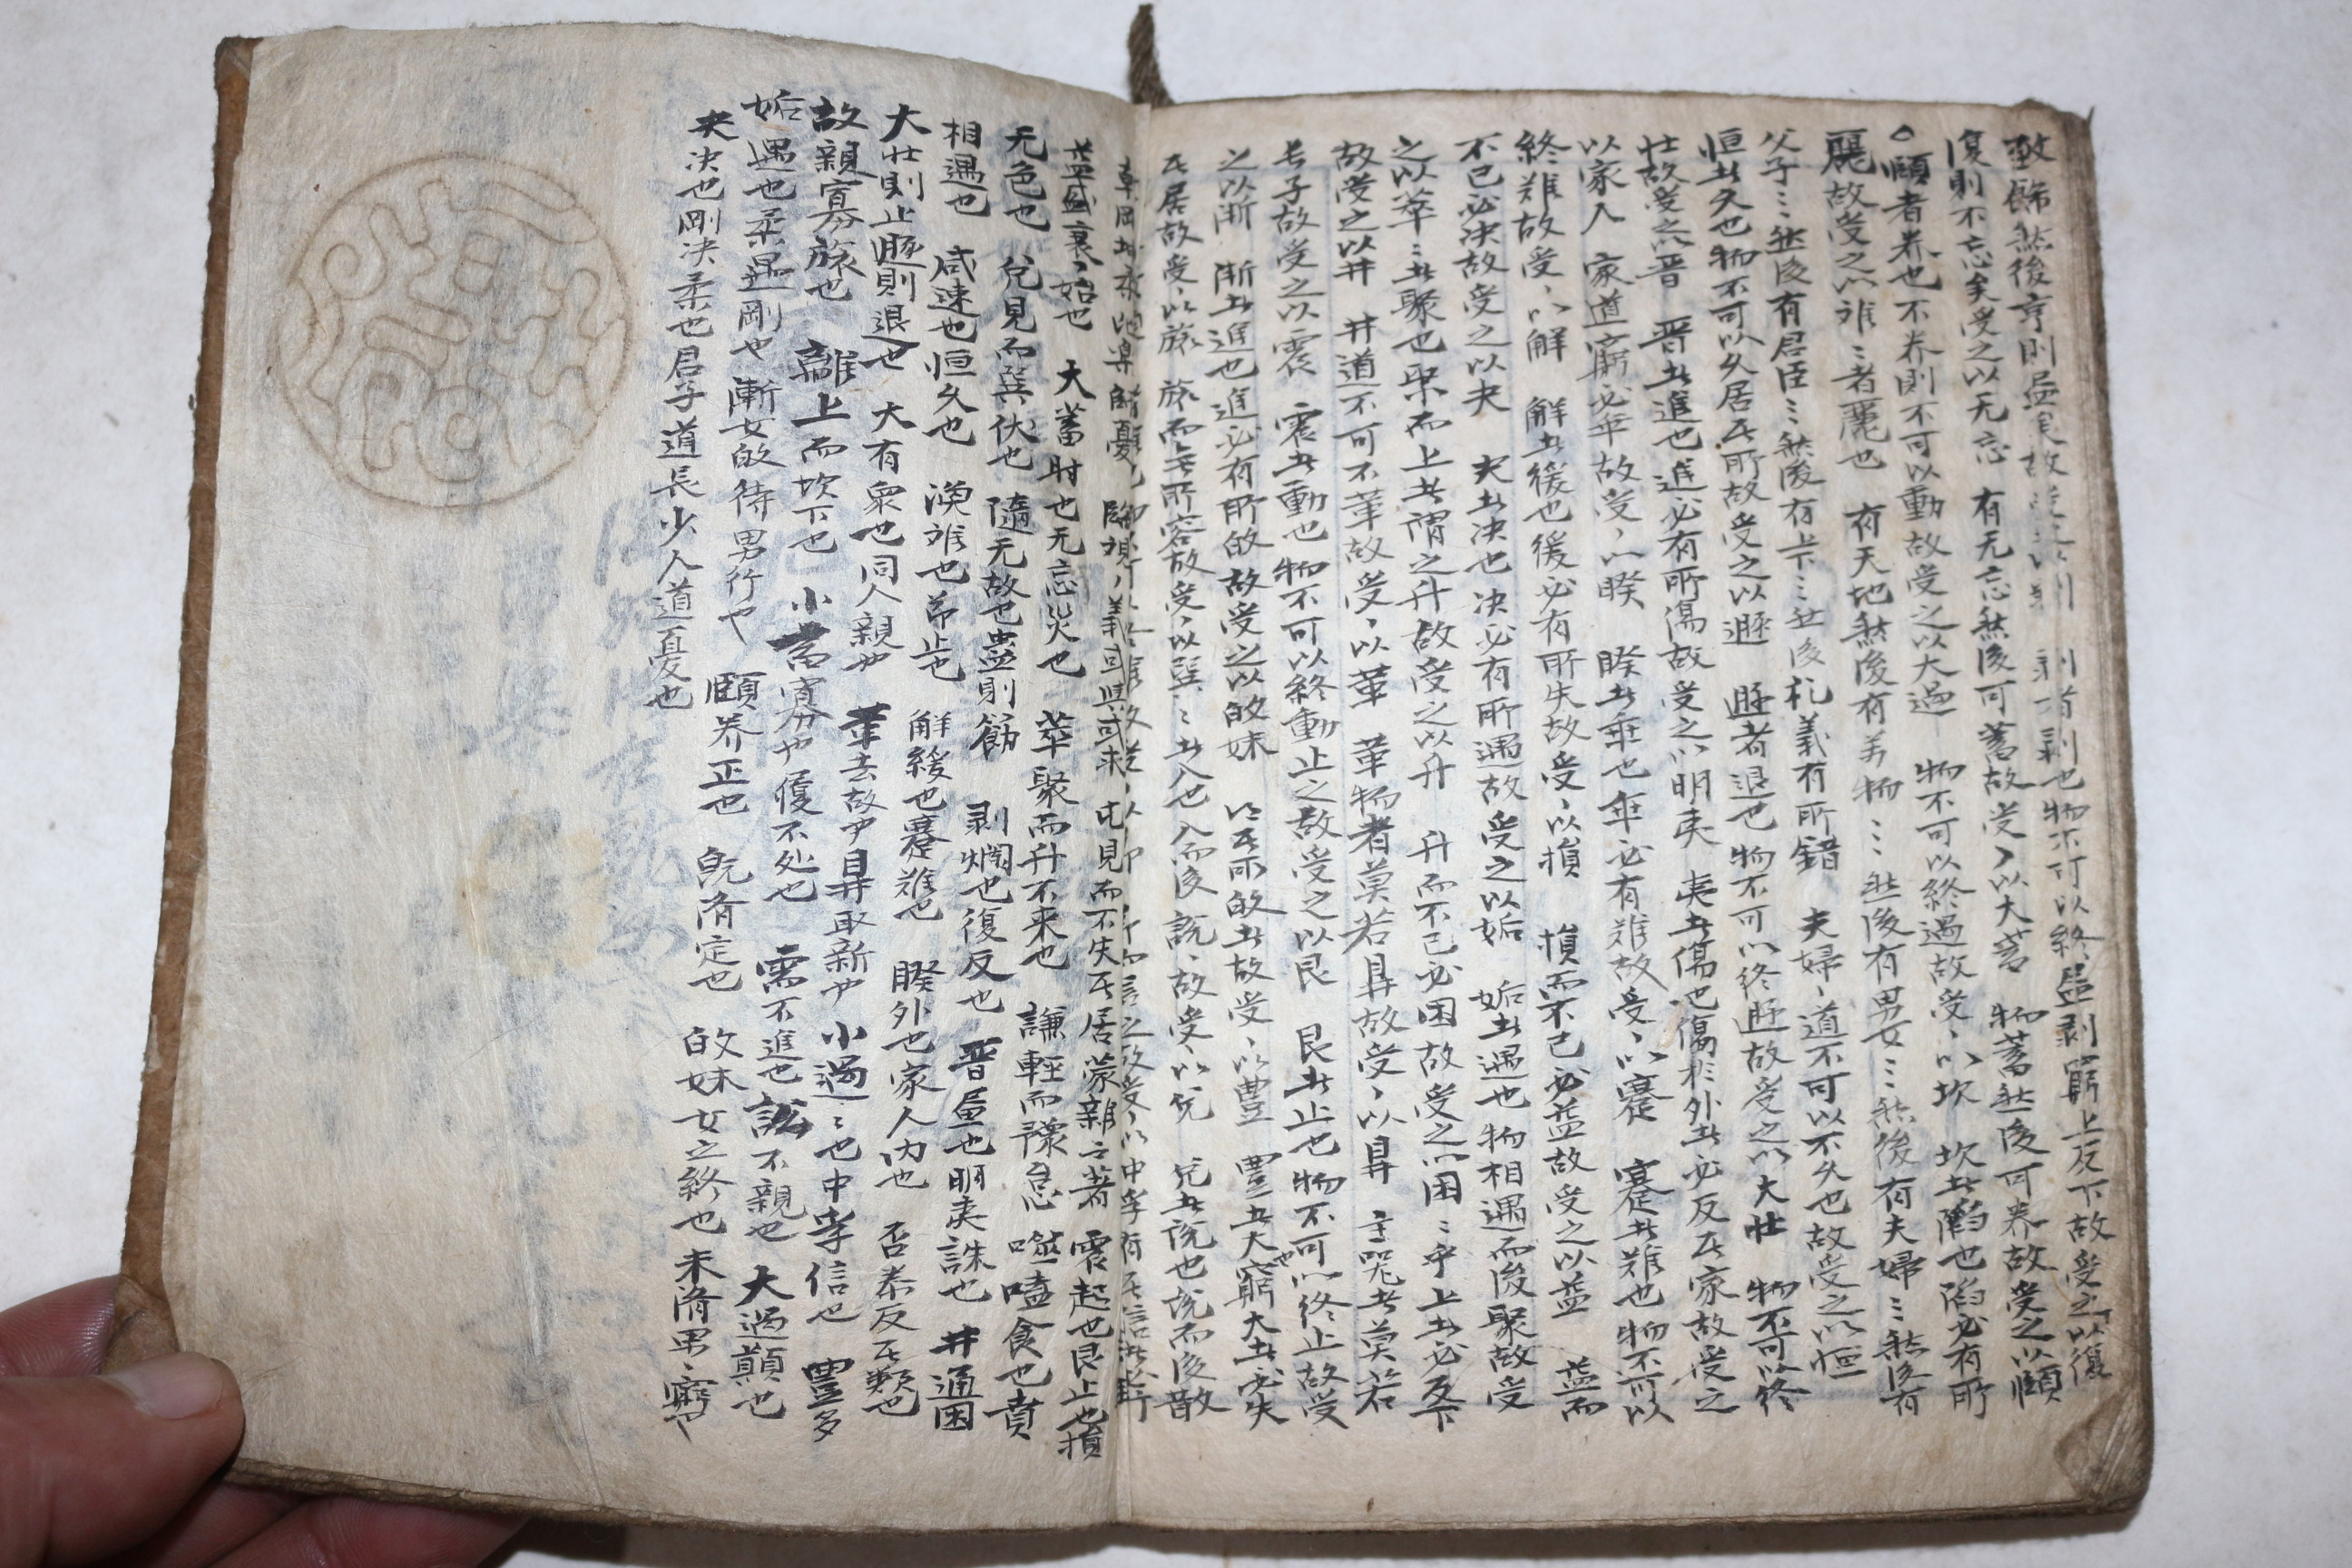 致餙然後亨則盡矣故受之以剝 剥者剥也物不可以終盡剥窮上反下故受之以復
復則不忘矣受之以无忘 有无忘然後可蓄故受〻以大蓄 物蓄然後可养故受之以頤
頤者养也不养則不可以動故受之以大過 物不可以終過故受〻以坎 坎者陷也陷必有所
麗故受之以难〻者麗也 有天地然後有万物〻〻然後有男女〻〻然後有夫婦〻〻然後有
父子〻〻然後有君臣〻〻然後有上下〻〻然後礼義有所錯 夫婦〻道不可以不久也故受之以恒
恒者久也物不可以久居其所故受之以遯 遯者退也物不可以終遯故受之以大壮 物不可以終
壮故受之以晋 晋者進也進必有所傷故受之以明夷 夷者傷也傷於外者必反其家故受之
以家人 家道窮必乖故受〻以睽 睽者乖也乖必有难故受〻以蹇 蹇者难也物不可以
終难故受〻以解 解者緩也緩必有所失故受〻以損 損而不已必益故受之以益 益而
不已必决故受之以夬 夬者决也决必有所遇故受之以姤 姤者遇也物相遇而後聚故受
之以萃〻者聚也聚而上者謂之升故受之以升 升而不已必困故受之以困〻乎上者必反下
故受之以井 井道不可不革故受〻以革 革物者莫若鼎故受〻以鼎 主器者莫若
長子故受之以震 震者動也物不可以終動止之故受之以艮 艮者止也物不可以終止故受
之以漸 漸者進也進必有所歸故受之以歸妹 得其所歸者故受〻以豊 豊者大也窮大者必失
其居故受〻以旅 旅而无所容故受〻以巽〻者入也入而後説〻故受〻以兌 兌者説也説而後散
乾剛坤柔比樂師憂 臨觀〻義或與或求 屯見而不失其居蒙雜而著 震起也艮止也損
益盛衰〻始也 大蓄时也无忘災也 萃聚而升不来也 謙輕而豫怠 噬嗑食也賁
无色也 兌見而巽伏也 隨无故也蠱則飭 剥爛也復反也 晋昼也明夷誅也 井通困
相遇也 咸速也恒久也 渙难也节止也 解緩也蹇难也 睽外也家人内也 否泰反其類也
大壮則止遯則退也 大有衆也同人親也 革去故也鼎取新也 小過〻也中孚信也 豊多
故親寡旅也 離上而坎下也 小蓄寡也履不处也 需不進也訟不親也 大過顛也
姤遇也柔遇剛也 漸女歸待男行也 頤养正也 旣済定也 歸妹女之終也 未済男〻窮也
夬决也剛决柔也君子道長少人道憂也